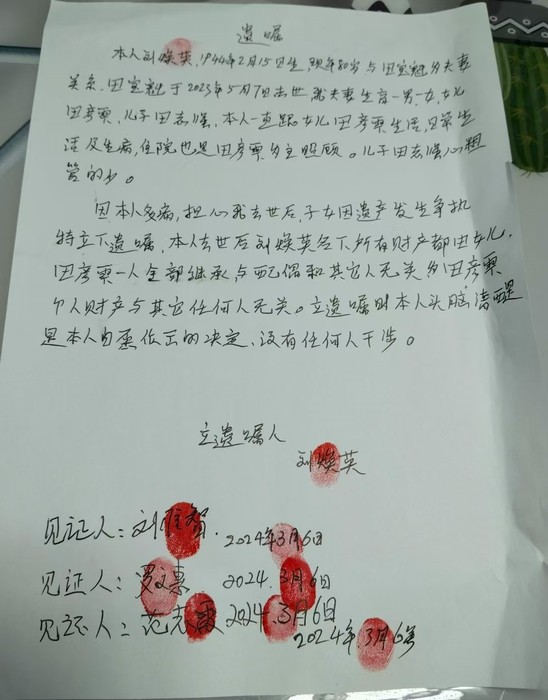 遗嘱
本人刘焕英,1944年2月15日生,现年80岁与田宝魁为夫妻
关系,田宝魁于2023年5月7日去世我夫妻生育一男一女,女儿
田彦票,儿子田志强,本人一直跟女儿田彦票生活,日常生
活及生病,住院也是田彦票为主照顾。儿子田志强心粗
管的少。
因本人多病,担心我去世后,子女因遗产发生争执
特立下遗嘱,本人去世后刘焕英名下所有财产都由女儿,
田彦票一人全部继承,与配偶和其它人无关为田彦票
个人财产与其它任何人无关。立遗嘱时本人头脑清醒
是本人自愿作出的决定,没有任何人干涉。
立遗嘱人
刘焕英
见证人:刘 智. 2024年3月6日
见证人:罗文惠 2024.3月6日
见证人:范志霞 2024.3月6日
2024年.3月6号